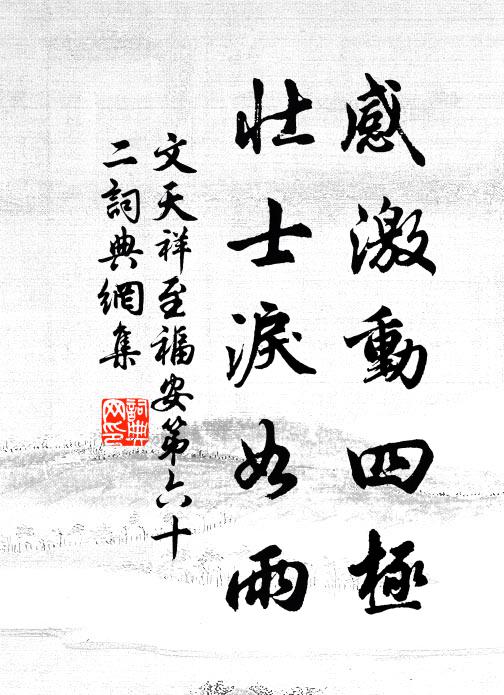 感激動四極
壯士淚如雨
文天祥至福安第六十
二詞典網集
詞典
网印